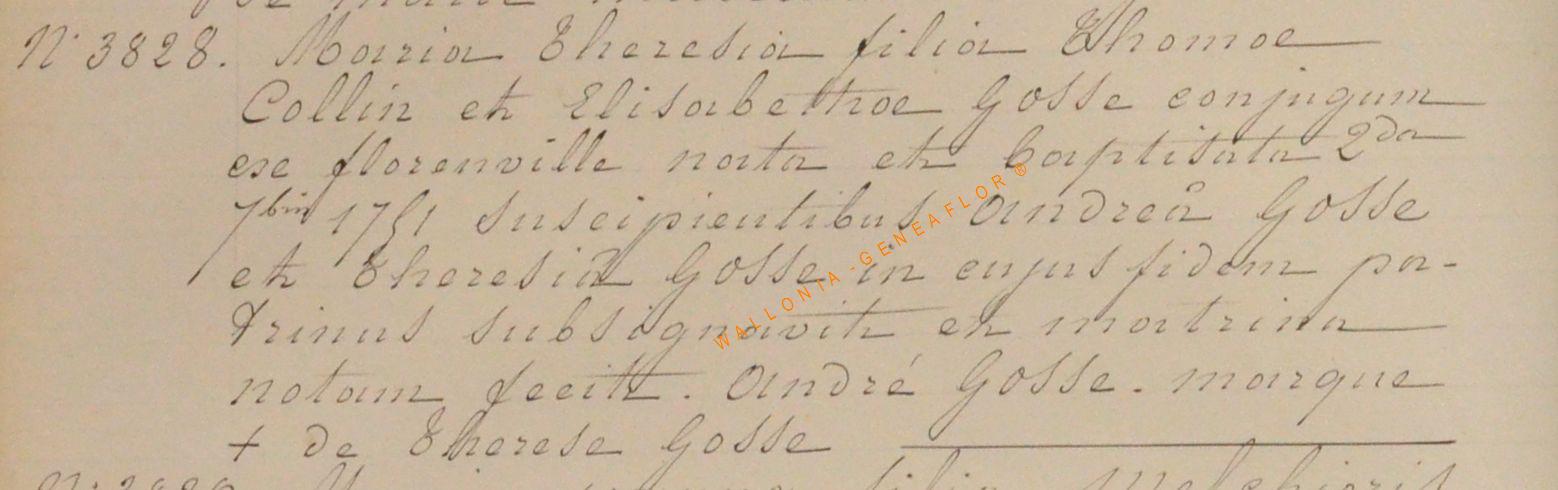 N° 3828. Maria Theresia filia Thomoe
Collin et Elisabethoe Gosse conjugum
exe florenville nata et baptisata 2da
7bris 1751 suscipientibus Andreâ Gosse
et Theresiâ Gosse in cujus fidem pa-
trinus subsignavit et matrina
notam fecit. André Gosse. marque
+ de Therese Gosse
filia Melchioris
WALLONIA-GENEAFLOR ®